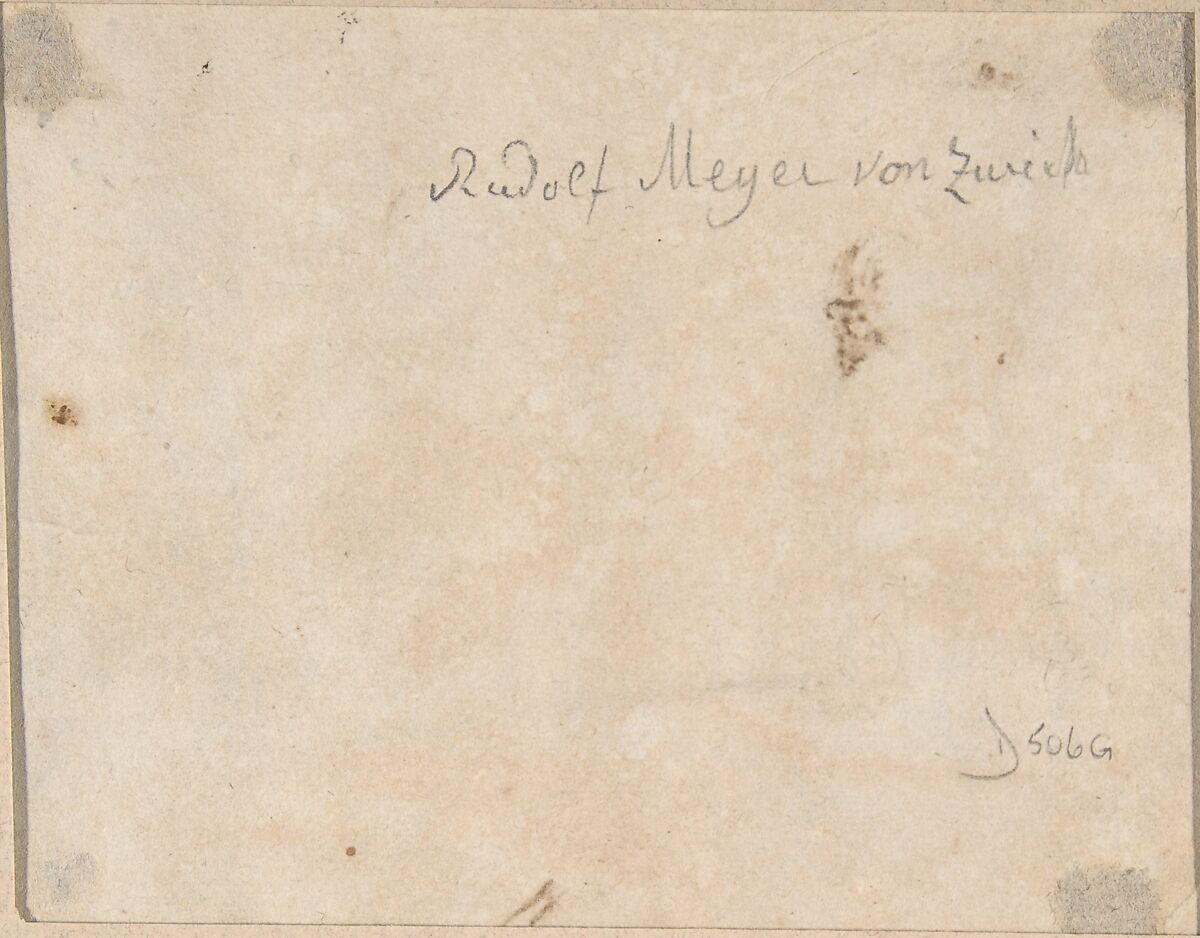 Rudolf Meyer von Zurich
D506G